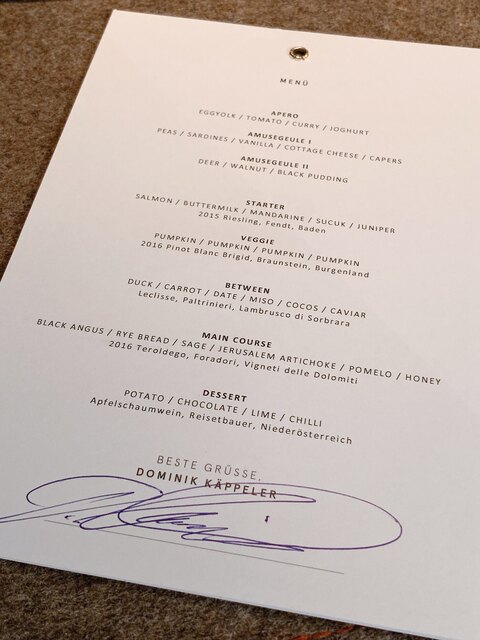 MENÜ
APERO
EGGYOLK / TOMATO / CURRY / JOGHURT
AMUSEGEULE I
PEAS / SARDINES / VANILLA / COTTAGE CHEESE / CAPERS
AMUSEGEULE II
DEER / WALNUT / BLACK PUDDING
STARTER
SALMON / BUTTERMILK / MANDARINE / SUCUK / JUNIPER
2015 Riesling, Fendt, Baden
VEGGIE
PUMPKIN / PUMPKIN / PUMPKIN / PUMPKIN
2016 Pinot Blanc Brigid, Braunstein, Burgenland
BETWEEN
DUCK / CARROT / DATE / MISO / COCOS / CAVIAR
Leclisse, Paltrinieri, Lambrusco di Sorbara
MAIN COURSE
BLACK ANGUS / RYE BREAD / SAGE / JERUSALEM ARTICHOKE / POMELO / HONEY
2016 Teroldego, Foradori, Vigneti delle Dolomiti
DESSERT
POTATO / CHOCOLATE / LIME / CHILLI
Apfelschaumwein, Reisetbauer, Niederösterreich
BESTE GRÜSSE,
DOMINIK KÄPPELER